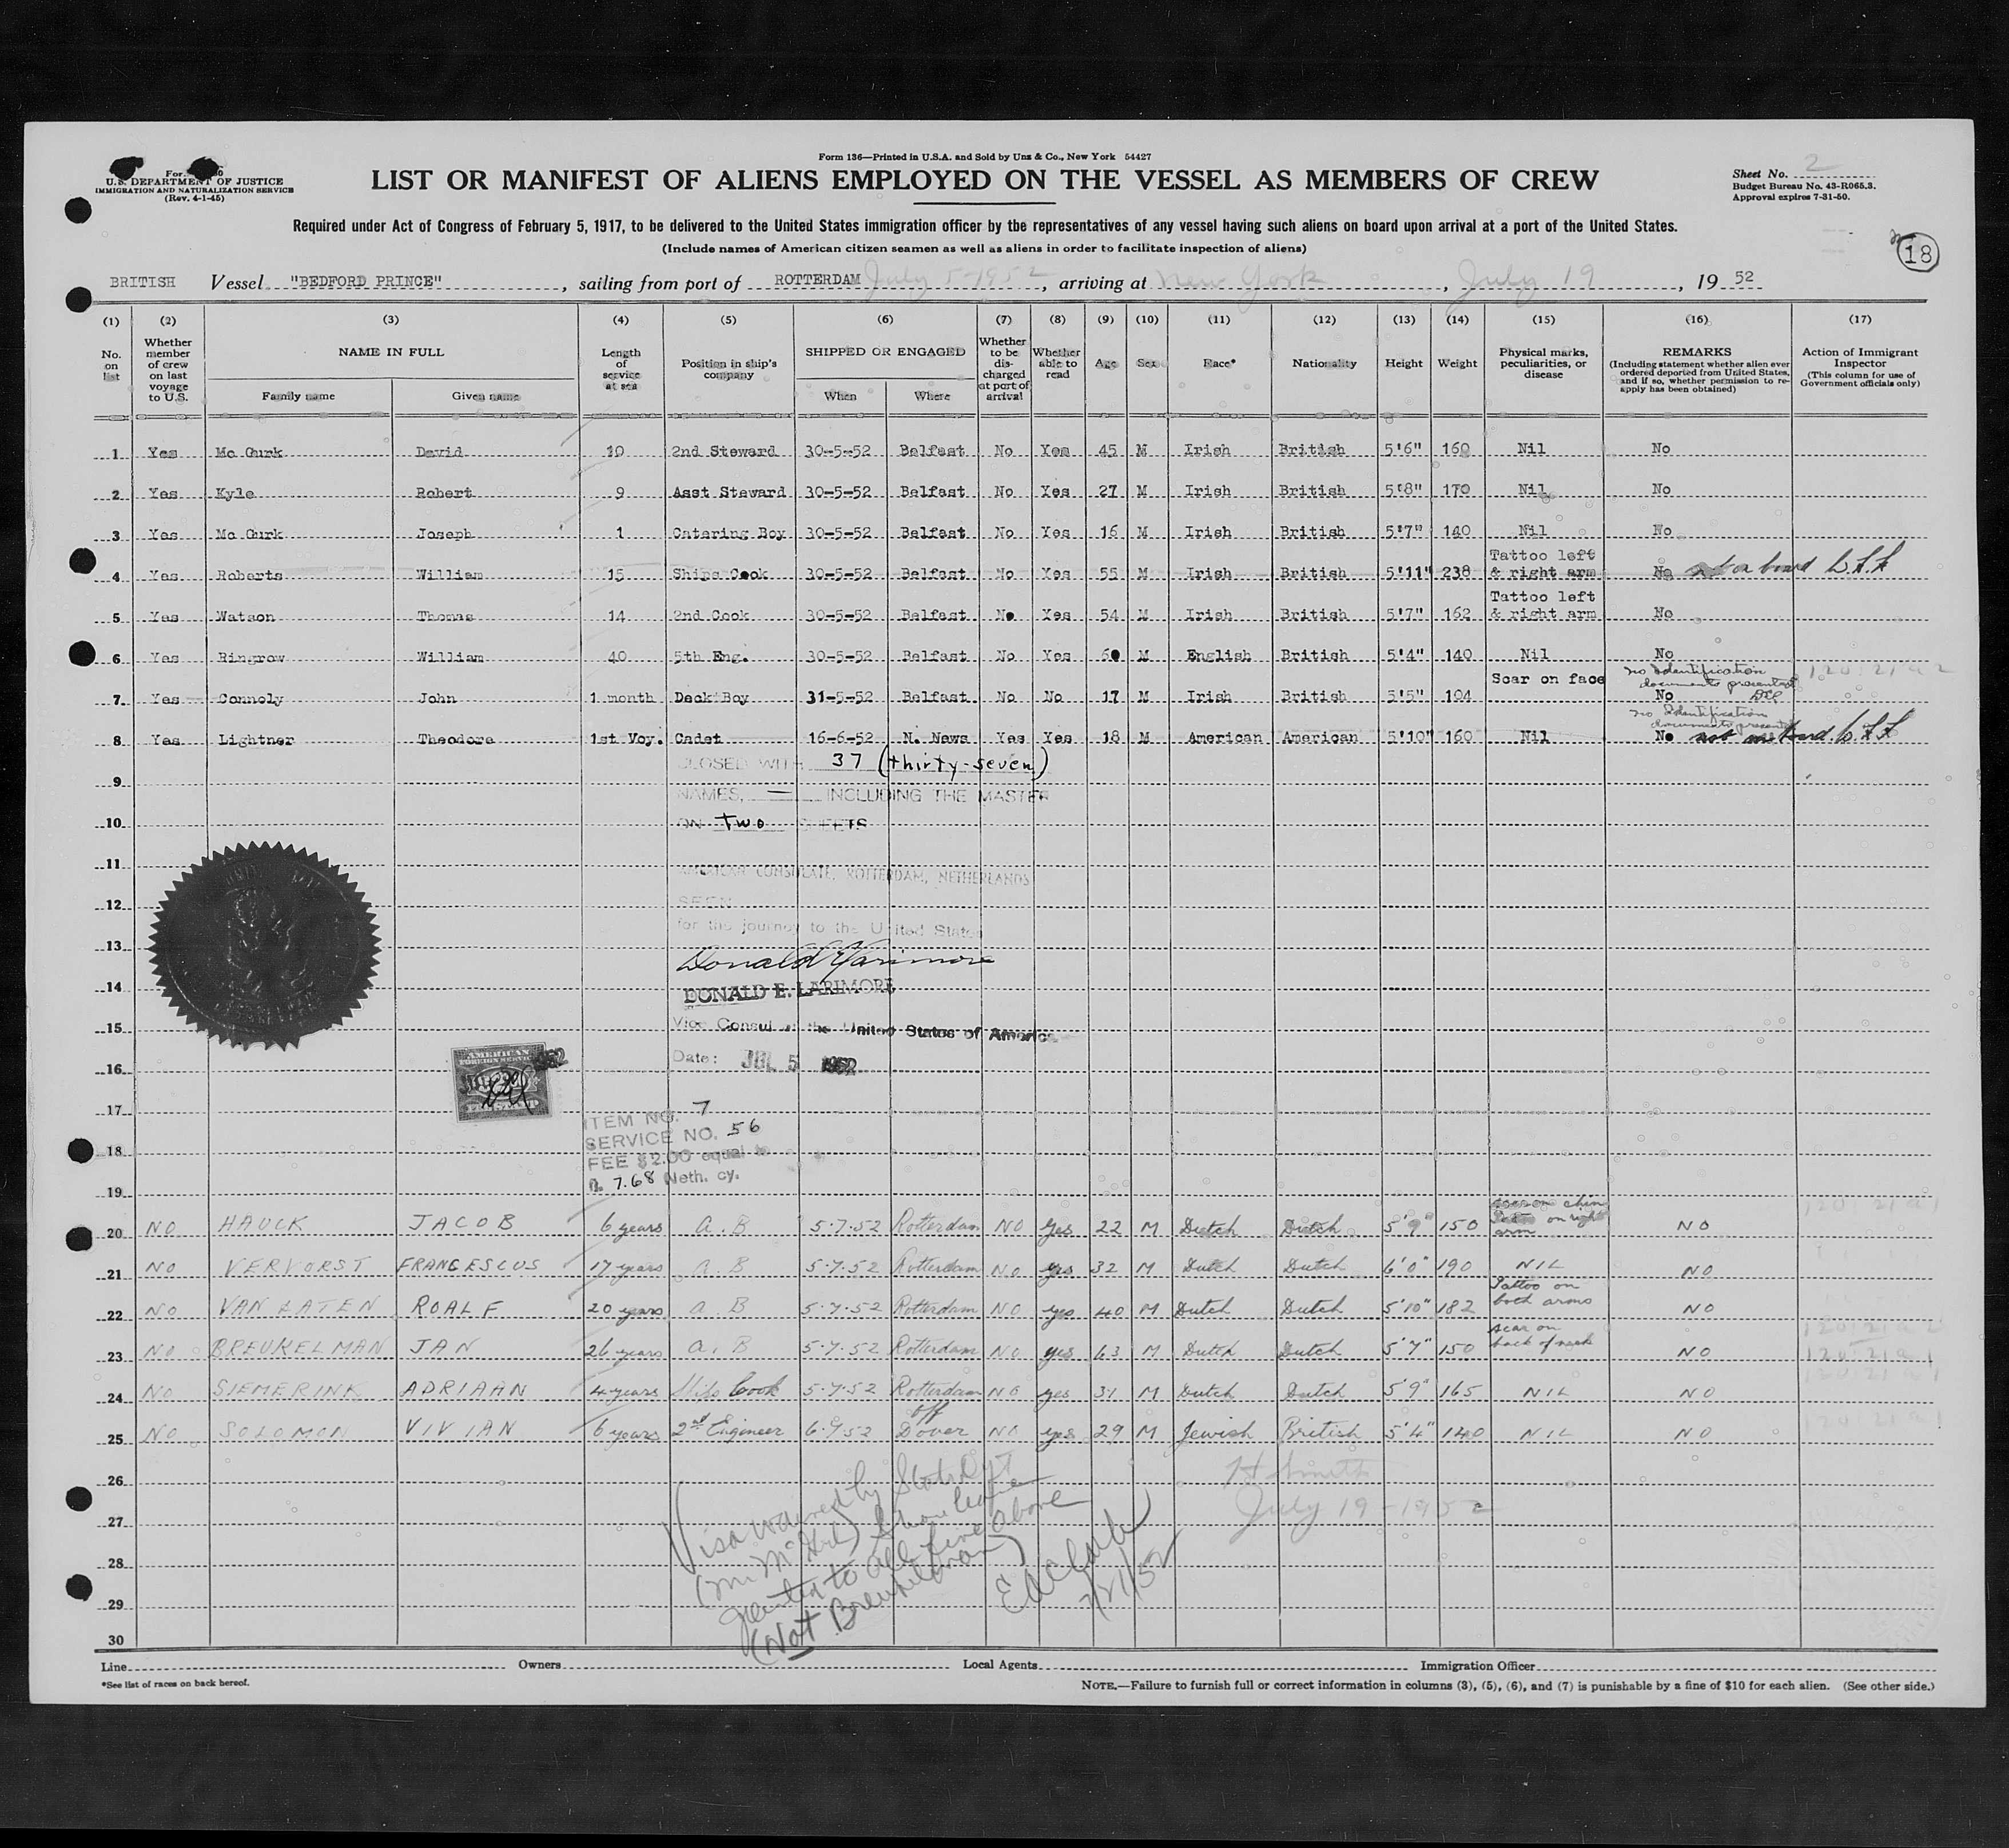 Form 136—Printed in U.S.A. and Sold by Unz & Co., New York 54427
U.S. DEPARTMENT OF JUSTICE
IMMIGRATION AND NATURALIZATION SERVICE
(Rev. 4-1-45)
LIST OR MANIFEST OF ALIENS EMPLOYED ON THE VESSEL AS MEMBERS OF CREW
Sheet No. 2
Budget Bureau No. 43-R065.3.
Approval expires 7-31-50.
Required under Act of Congress of February 5, 1917, to be delivered to the United States immigration officer by the representatives of any vessel having such aliens on board upon arrival at a port of the United States.
(Include names of American citizen seamen as well as aliens in order to facilitate inspection of aliens)
18
BRITISH Vessel "BEDFORD PRINCE", sailing from port of ROTTERDAM July 5-1952, arriving at New York, July 19, 19 52
(1) (2) (3) (4) (5) (6) (7) (8) (9) (10) (11) (12) (13) (14) (15) (16) (17)
No. on list
Whether member of crew on last voyage to U.S.
NAME IN FULL
Family name Given name
Length of service at sea
Position in ship's company
SHIPPED OR ENGAGED
When Where
Whether to be discharged at port of arrival
Whether able to read
Age Sex Race* Nationality Height Weight
Physical marks, peculiarities, or disease
REMARKS
(Including statement whether alien ever ordered deported from United States, and if so, whether permission to reapply has been obtained)
Action of Immigrant Inspector
(This column for use of Government officials only)
1 Yes Mc Gurk David 10 2nd Steward 30-5-52 Belfast No Yes 45 M Irish British 5'6" 160 Nil No
2 Yes Kyle Robert 9 Asst Steward 30-5-52 Belfast No Yes 27 M Irish British 5'8" 170 Nil No
3 Yes Mc Gurk Joseph 1 Catering Boy 30-5-52 Belfast No Yes 16 M Irish British 5'7" 140 Nil No
4 Yes Roberts William 15 Ships Cook 30-5-52 Belfast No Yes 55 M Irish British 5'11" 238 Tattoo left & right arm No not on board
5 Yes Watson Thomas 14 2nd Cook 30-5-52 Belfast No Yes 54 M Irish British 5'7" 162 Tattoo left & right arm No
6 Yes Ringrow William 40 5th Eng. 30-5-52 Belfast No Yes 60 M English British 5'4" 140 Nil No
7 Yes Connoly John 1 month Deck Boy 31-5-52 Belfast No No 17 M Irish British 5'5" 104 Scar on face no identification documents presented No
8 Yes Lightner Theodore 1st Voy. Cadet 16-6-52 N. News Yes Yes 18 M American American 5'10" 160 Nil no Identification documents presented No not on board.
9
CLOSED WITH 37 (thirty-seven)
NAMES, — INCLUDING THE MASTER
10
ON two SHEETS
11
AMERICAN CONSULATE, ROTTERDAM, NETHERLANDS
12
SEEN
for the journey to the United States
13
Donald Larimore
14
DONALD E. LARIMORE
15
Vice Consul of the United States of America
16
Date: JUL 5 1952
AMERICAN
FOREIGN SERVICE
17
ITEM NO. 7
SERVICE NO. 56
18
FEE $2.00 equal to
fl. 7.68 Neth. cy.
19
20 NO HAUCK JACOB 6 years A.B 5.7.52 Rotterdam NO Yes 22 M Dutch Dutch 5'9" 150 scar on chin on right arm NO
21 NO VERVORST FRANCESCUS 17 years A.B 5.7.52 Rotterdam NO yes 32 M Dutch Dutch 6'0" 190 NIL NO
22 NO VAN LATEN ROALF 20 years A.B 5.7.52 Rotterdam NO yes 40 M Dutch Dutch 5'10" 182 Tattoo on both arms NO
23 NO BREUKELMAN JAN 26 years A.B 5.7.52 Rotterdam NO yes 63 M Dutch Dutch 5'7" 150 scar on back of neck NO
24 NO SIEMERINK ADRIAAN 4 years Ships Cook 5.7.52 Rotterdam NO yes 31 M Dutch Dutch 5'9" 165 NIL NO
25 NO SOLOMON VIVIAN 6 years 2nd Engineer 6.7.52 off Dover NO yes 29 M Jewish British 5'4" 140 NIL NO
26
27
28
29
30
Visa waived by State Dpt
shore leave
granted to all five above
(Not Breukelman)
7/21/52
H Smith
July 19-1952
Line Owners Local Agents Immigration Officer
*See list of races on back hereof.
NOTE.—Failure to furnish full or correct information in columns (3), (5), (6), and (7) is punishable by a fine of $10 for each alien. (See other side.)